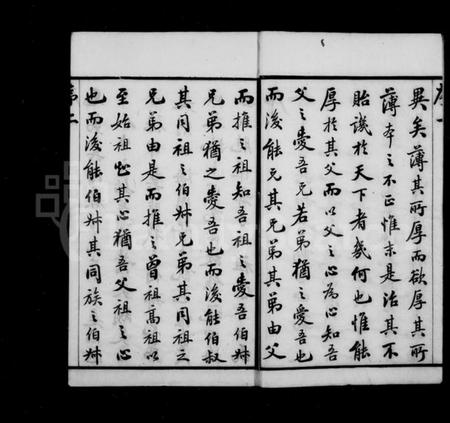 序一
異矣薄其所厚而欲厚其所
薄本之不正惟末是治其不
貽譏於天下者幾何也惟能
厚於其父而以父之心為心知吾
父之愛吾兄若弟猶之愛吾也
而後能兄其兄弟其弟由父
而推之祖知吾祖之愛吾伯叔
兄弟猶之愛吾也而後能伯叔
其同祖之伯叔兄弟其同祖之
兄弟由是而推之曾祖高祖以
至始祖心其心猶吾父祖之心
也而後能伯叔其同族之伯叔
第二